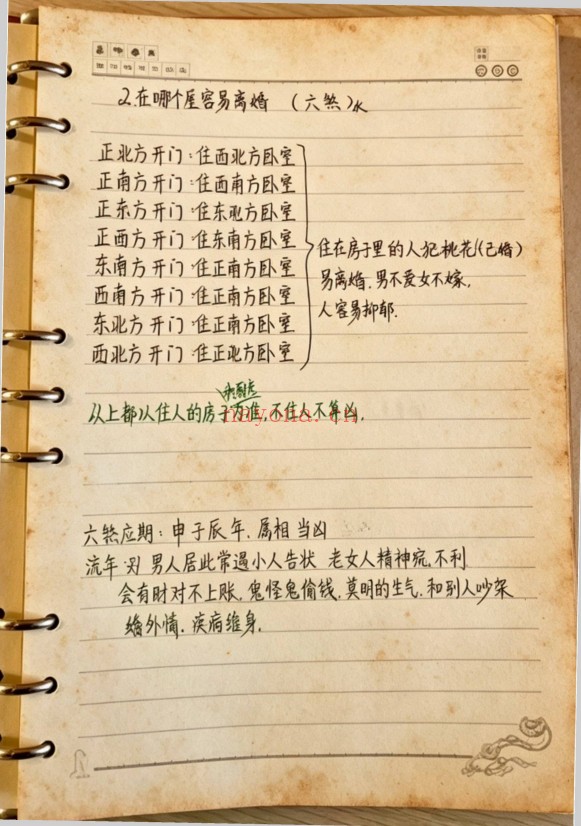 2.在哪个屋容易离婚 (六煞)水
正北方开门:住西北方卧室
正南方开门:住西南方卧室
正东方开门:住东北方卧室
正西方开门:住东南方卧室
东南方开门:住正西方卧室
西南方开门:住正南方卧室
东北方开门:住正南方卧室
西北方开门:住正北方卧室
住在房子里的人犯桃花(已婚)
易离婚.男不爱女不嫁,
人容易抑郁.
从上都以住人的房子为准,不住人不算凶.
nayona.cn
六煞应期:申子辰年.属相当凶
流年 男人居此常遇小人告状 老女人精神 不利
会有财对不上账,鬼怪鬼偷钱,莫明的生气.和别人吵架
婚外情.疾病缠身.